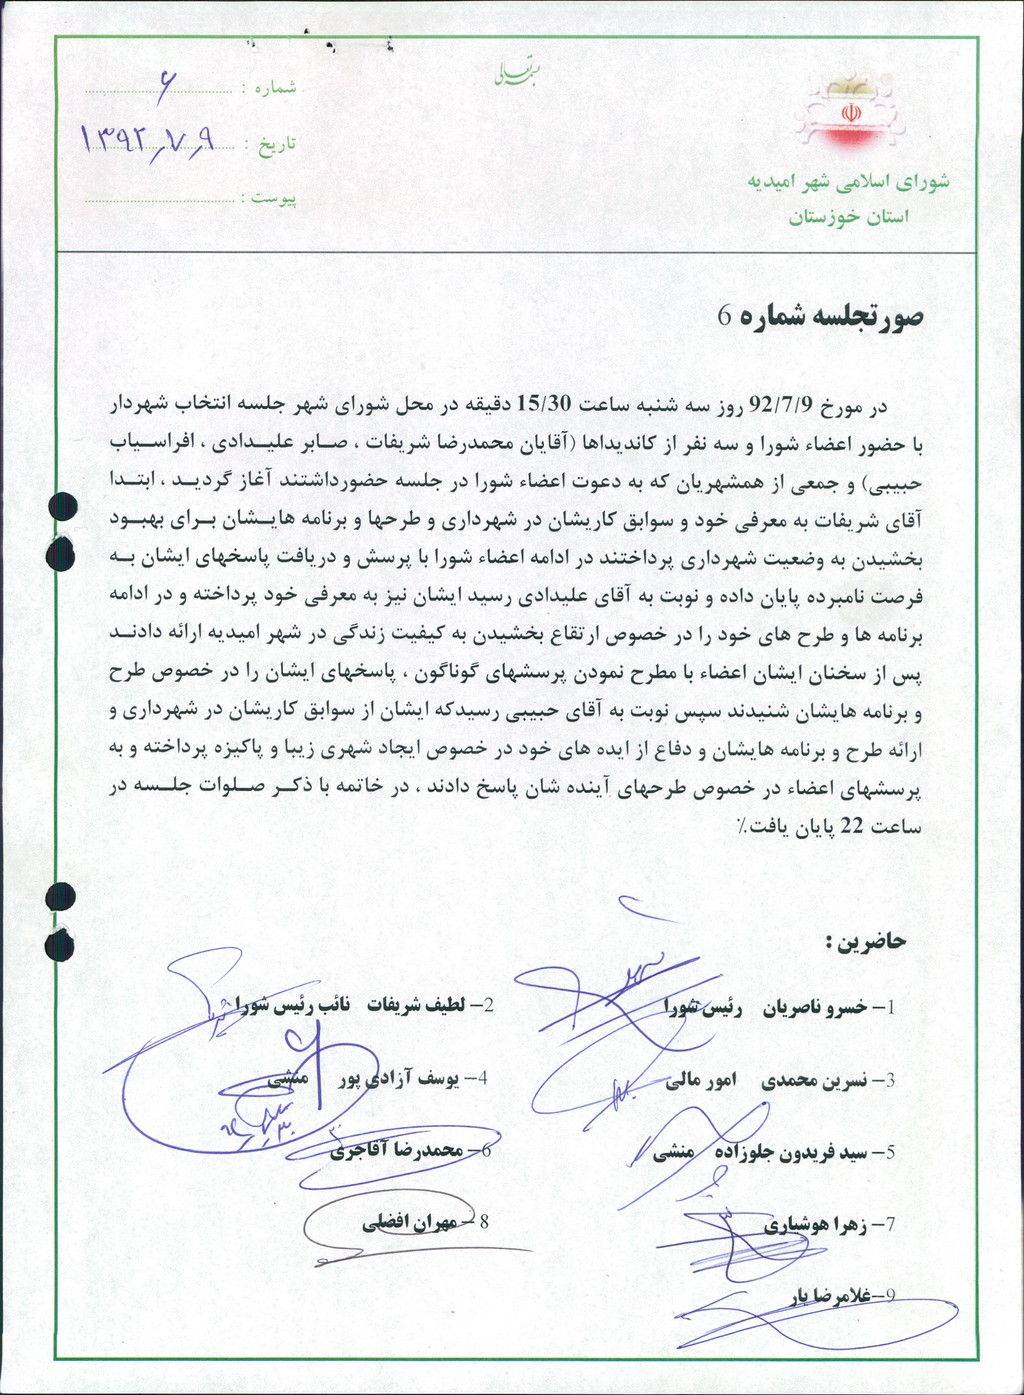 بسمه تعالی
شورای اسلامی شهر امیدیه
استان خوزستان
شماره : ۶
تاریخ : ۱۳۹۲٫۷٫۹
پیوست :
صورتجلسه شماره 6
در مورخ 92/7/9 روز سه شنبه ساعت 15/30 دقیقه در محل شورای شهر جلسه انتخاب شهردار
با حضور اعضاء شورا و سه نفر از کاندیداها (آقایان محمدرضا شریفات ، صابر علیدادی ، افراسیاب
حبیبی) و جمعی از همشهریان که به دعوت اعضاء شورا در جلسه حضورداشتند آغاز گردید ، ابتدا
آقای شریفات به معرفی خود و سوابق کاریشان در شهرداری و طرحها و برنامه هایشان برای بهبود
بخشیدن به وضعیت شهرداری پرداختند در ادامه اعضاء شورا با پرسش و دریافت پاسخهای ایشان به
فرصت نامبرده پایان داده و نوبت به آقای علیدادی رسید ایشان نیز به معرفی خود پرداخته و در ادامه
برنامه ها و طرح های خود را در خصوص ارتقاع بخشیدن به کیفیت زندگی در شهر امیدیه ارائه دادند
پس از سخنان ایشان اعضاء با مطرح نمودن پرسشهای گوناگون ، پاسخهای ایشان را در خصوص طرح
و برنامه هایشان شنیدند سپس نوبت به آقای حبیبی رسیدکه ایشان از سوابق کاریشان در شهرداری و
ارائه طرح و برنامه هایشان و دفاع از ایده های خود در خصوص ایجاد شهری زیبا و پاکیزه پرداخته و به
پرسشهای اعضاء در خصوص طرحهای آینده شان پاسخ دادند ، در خاتمه با ذکر صلوات جلسه در
ساعت 22 پایان یافت٪
حاضرین :
1– خسرو ناصریان رئیس شورا
2– لطیف شریفات نائب رئیس شورا
3– نسرین محمدی امور مالی
4– یوسف آزادی پور منشی
5– سید فریدون جلوزاده منشی
6– محمدرضا آقاجری
7– زهرا هوشیاری
8– مهران افضلی
9–غلامرضا یار